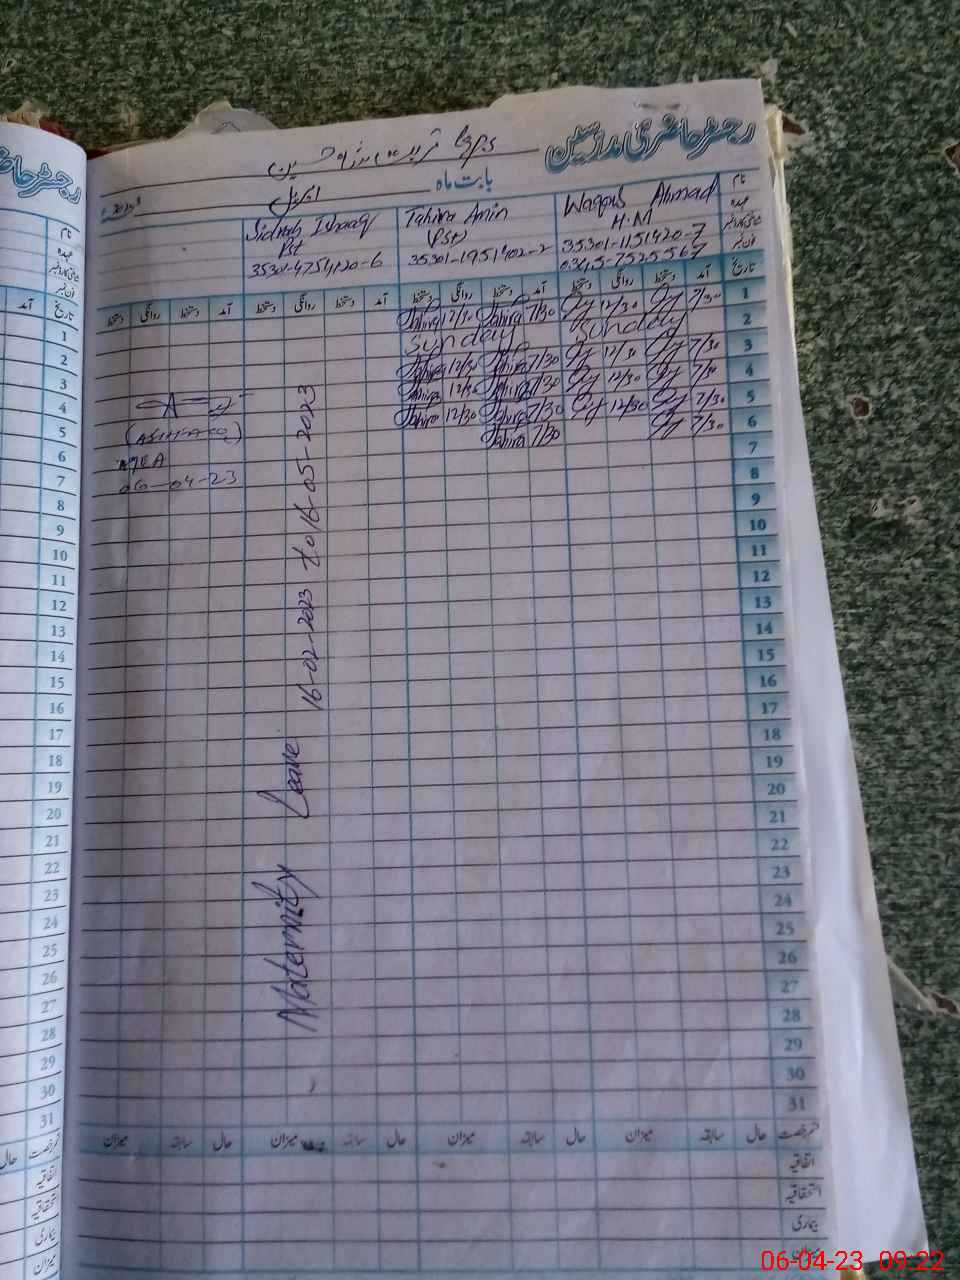 رجسٹر حاضری مدرسین gps
بابت ماہ اپریل 2023
نام Waqas Ahmad Tahira Amin Sidrah Ishaq
عہدہ H.M (Pst) Pst
شناختی کارڈ نمبر 35301-1151420-7 35301-1951402-2 35301-4754120-6
فون نمبر 0345-7525567
تاریخ آمد دستخط روانگی دستخط آمد دستخط روانگی دستخط آمد دستخط روانگی دستخط آمد دستخط روانگی دستخط
1 7/30 12/30 7/30 Tahira 12/30 Tahira
2 Sunday Sunday
3 7/30 12/30 7/30 Tahira 12/30 Tahira
4 7/30 12/30 7/30 Tahira 12/30 Tahira
5 7/30 12/30 7/30 Tahira 12/30 Tahira
6 7/30 7/30 Tahira
7
8
9
10
11
12
13
14
15
16
17
18
19
20
21
22
23
24
25
26
27
28
29
30
31
Maternity Leave 16-02-2023 to 16-05-2023
MEA
06-04-23
قسم رخصت حال سابقہ میزان حال سابقہ میزان حال سابقہ میزان حال سابقہ میزان
اتفاقیہ
استحقاقیہ
بیماری
میزان
نام
عہدہ
تاریخ آمد
1
2
3
4
5
6
7
8
9
10
11
12
13
14
15
16
17
18
19
20
21
22
23
24
25
26
27
28
29
30
31
قسم رخصت حال
اتفاقیہ
استحقاقیہ
بیماری
میزان
06-04-23 09:22